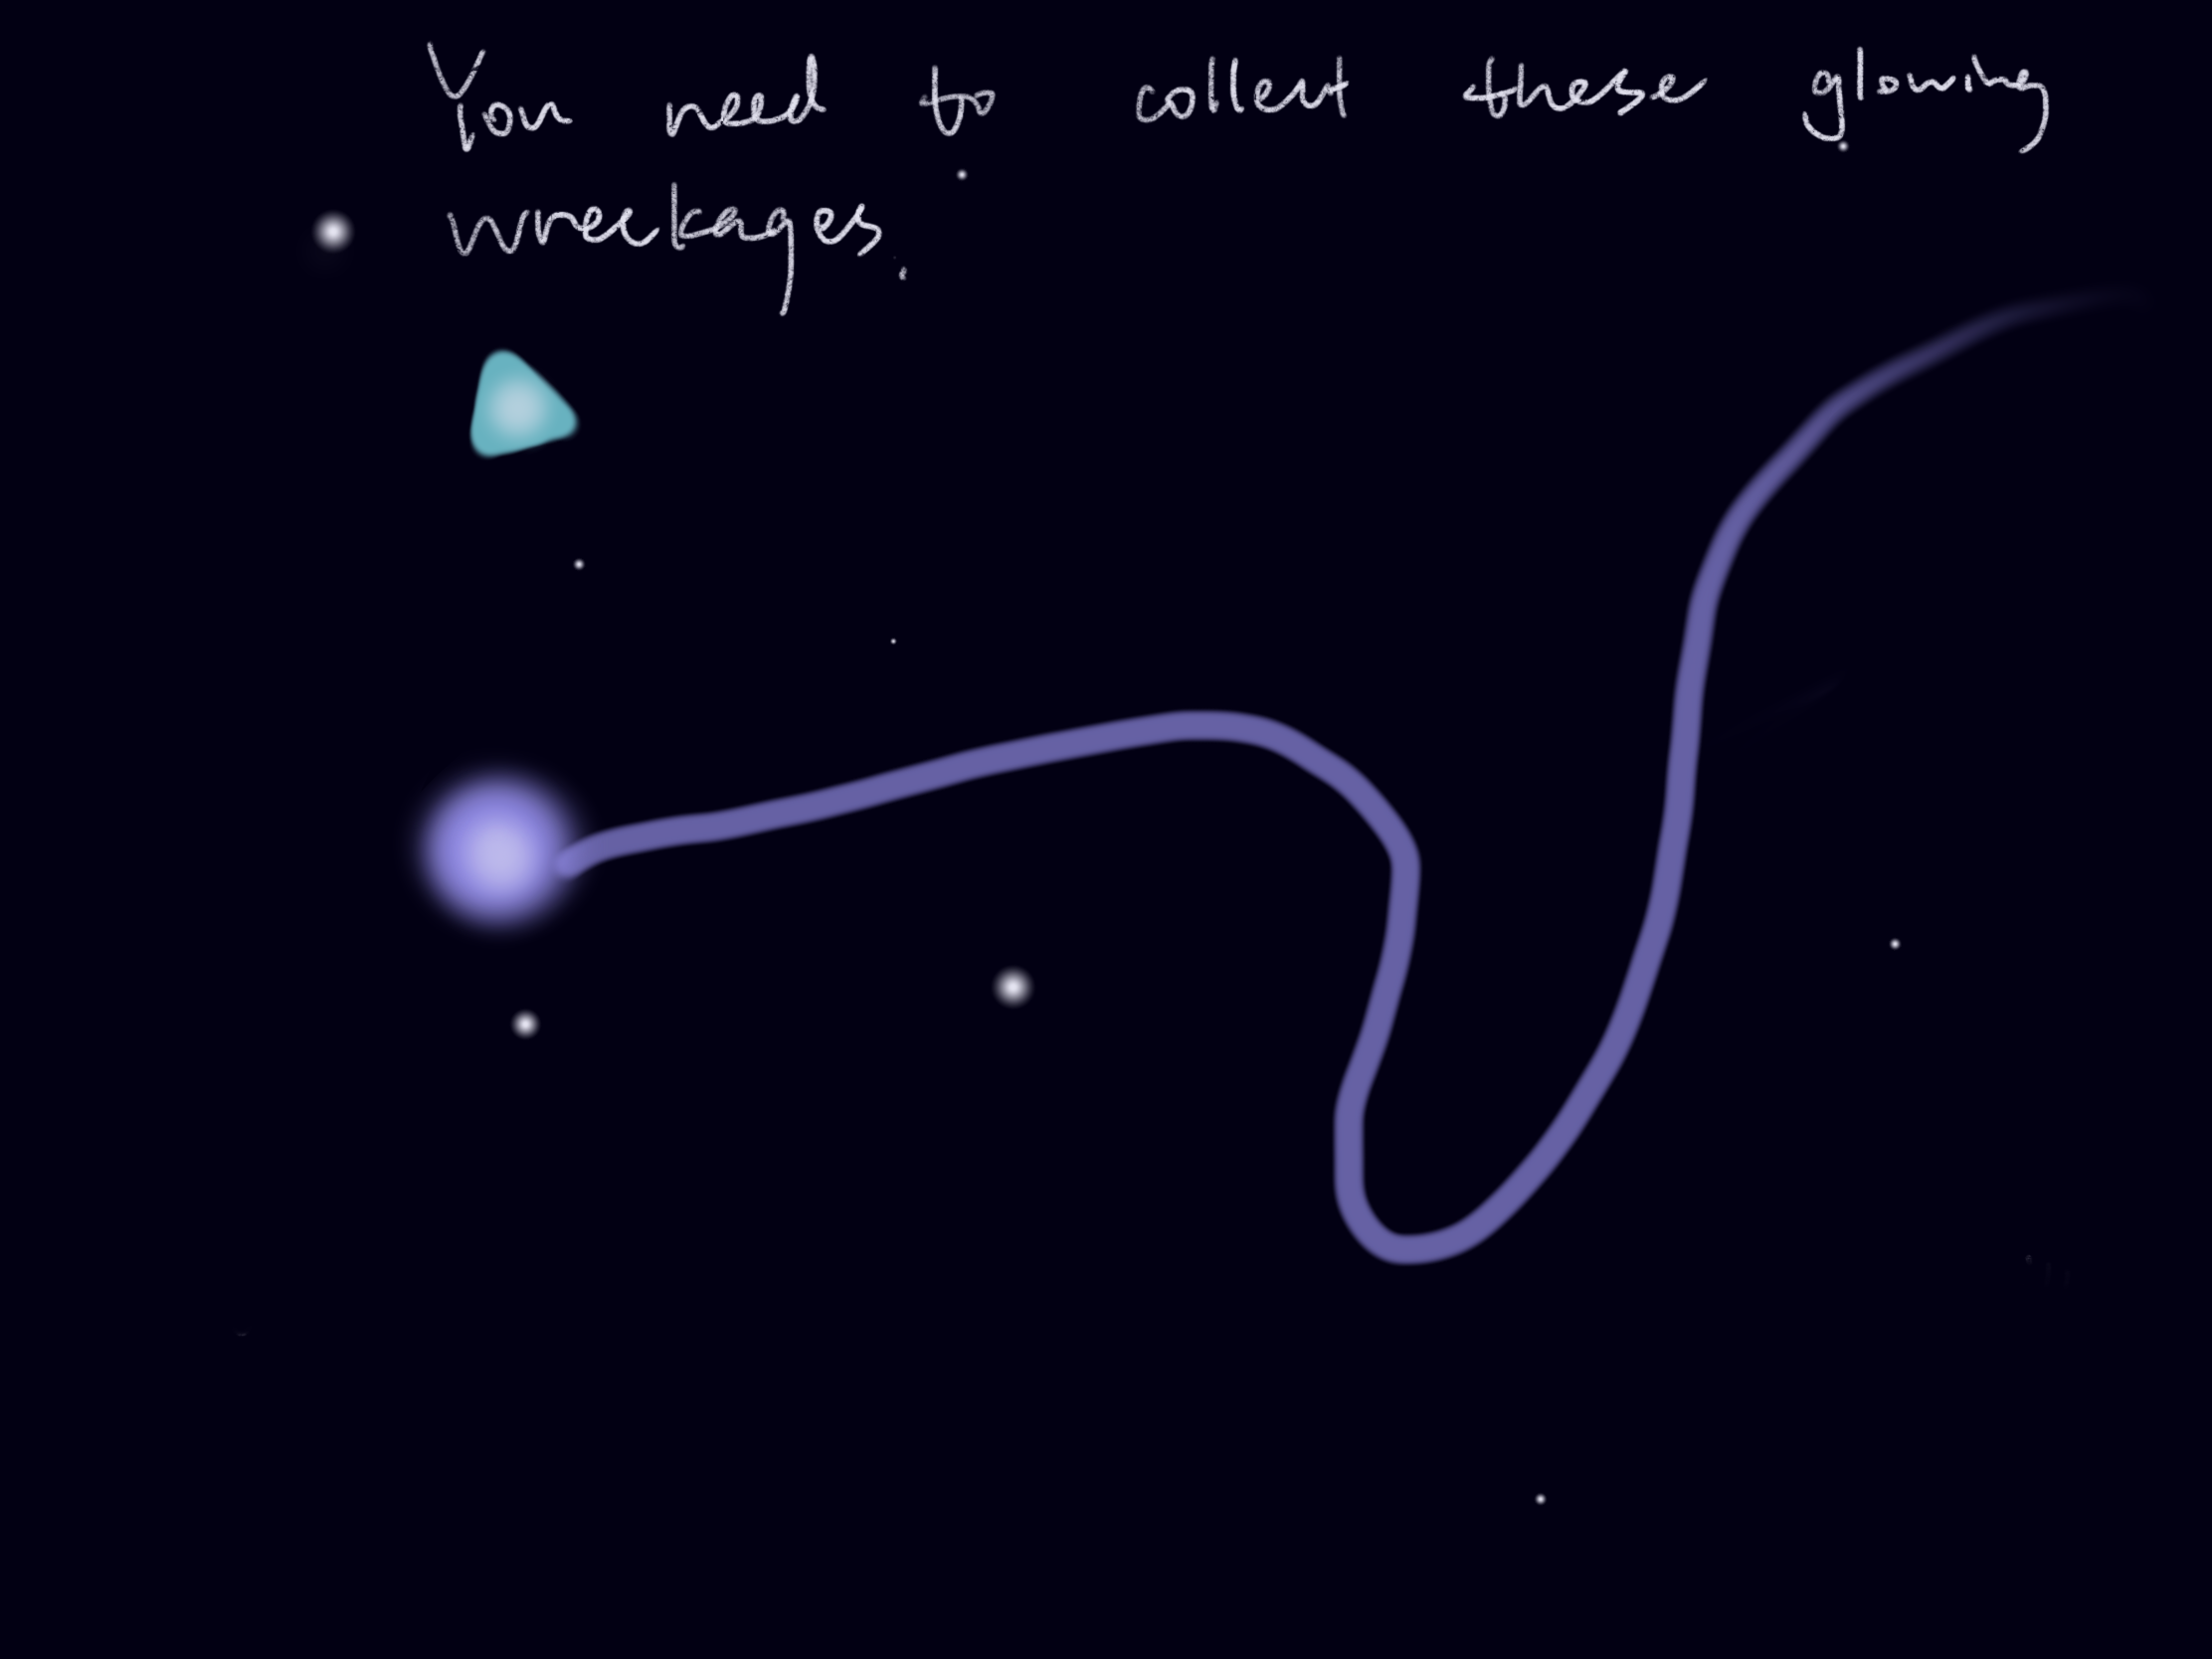 You need to collect these glowing
wreckages.